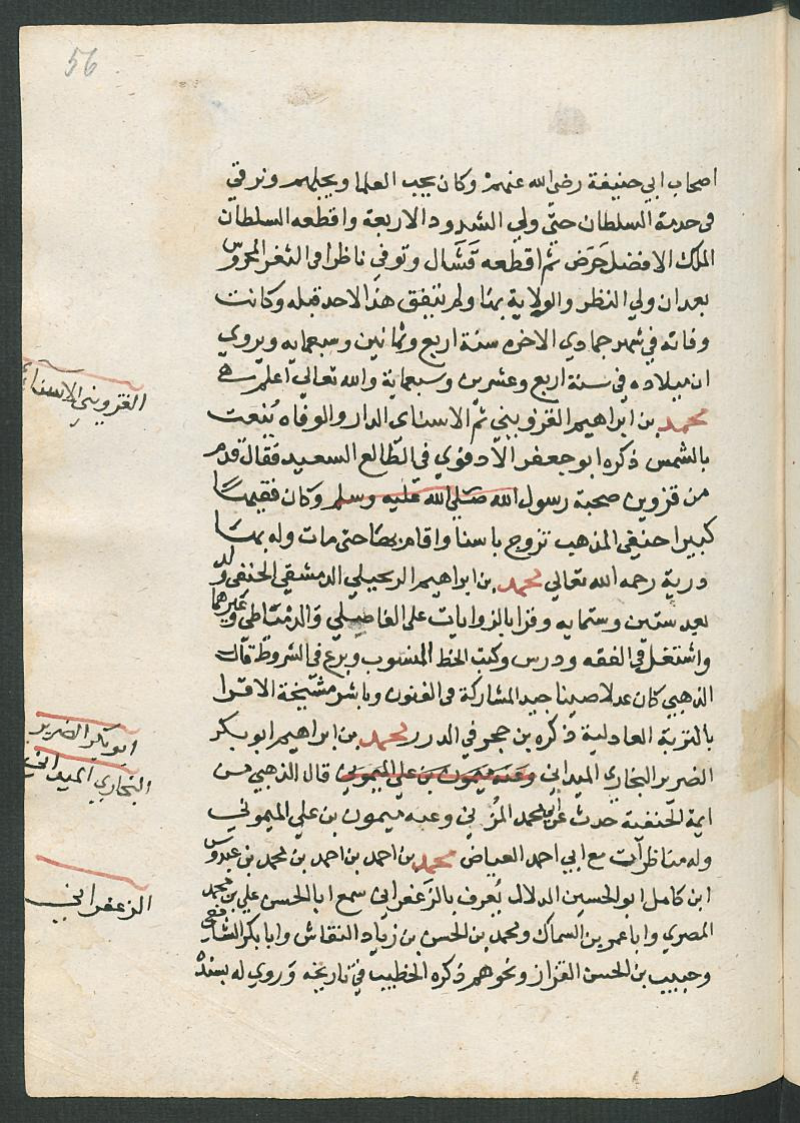 56
اصحاب ابي حنيفة رضي الله عنهم وكان يحب العلما ويجلهم وترقي
في خدمة السلطان حتي ولي الشدود الاربعة واقطعه السلطان
الملك الافضل حَرَض ثم اقطعه فَشَال وتوفي ناظرا في الثغر المحروس
بعد ان ولي النظر والولاية بها ولم يتفق هذا لاحد قبله وكانت
وفاته في شهر جمادي الاخره سنة اربع وثمانين وسبعمايه ويروي
ان ميلاده في سنة اربع وعشرين وسبعماية والله تعالي اعلم
محمد بن ابراهيم القزويني ثم الاسناى الدار والوفاه يُنعت
بالشمس ذكره ابو جعفر الادفوي في الطالع السعيد فقال قدم
من قزوين صحبة رسول الله صلي الله عليه وسلم وكان فقيها
كبيرا حنفي المذهب تزوج باسنا واقام بها حتى مات وله بها
درية رحمه الله تعالي محمد بن ابراهيم الدمشقي الحنفي ولد
بعد ستين وستمايه وقرا بالروايات علي الفاضلي والدمياطي وغيرهما
واشتغل في الفقه ودرس وكتب الخط المنسوب وبرع في الشروط قال
الذهبي كان عدلا صينا جيد المشاركة في الفنون وباشر مشيخة الاقرا
بالتربة العادلية ذكره بن حجر في الدرر محمد بن ابراهيم ابو بكر
الضرير البخاري الميداني وعنه ميمون بن علي الميموني قال الذهبي من
ايمة الحنفية حدث عن ابي محمد المزني وعنه ميمون بن علي الميموني
وله مناظرات مع ابي احمد العياض محمد بن احمد بن احمد بن محمد بن عبدوس
ابن كامل ابو الحسين الدلال يُعرف بالزعفراني سمع ابا الحسن علي بن محمد
المصري وابا عمرو بن السماك ومحمد بن الحسن بن زياد النقاش وابا بكر الشافعي
وحبيب بن الحسن القزاز ونحوهم ذكره الخطيب في تاريخه وروي له بسنده
القزويني الاسناي
ابو بكر الضرير
البخاري الميداني
الزعفراني